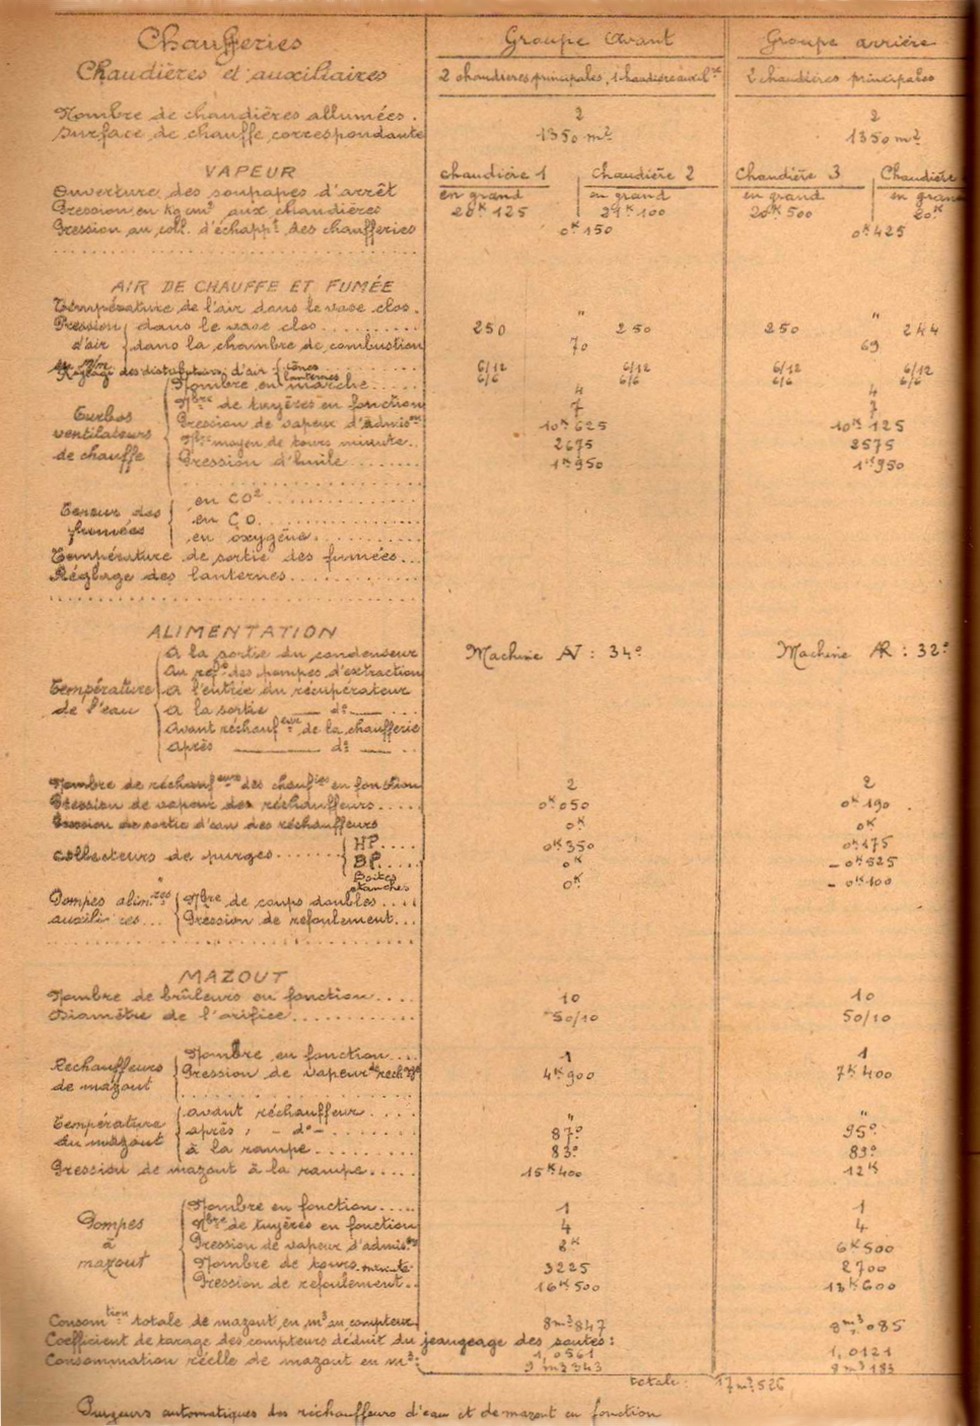 Chaufferies Groupe Avant Groupe arrière
Chaudières et auxiliaires 2 chaudières principales, 1 chaudière auxil.re 2 chaudières principales
Nombre de chaudières allumées. 2 2
Surface de chauffe correspondante 1350 m² 1350 m²
VAPEUR chaudière 1 Chaudière 2 Chaudière 3 Chaudière
Ouverture des soupapes d'arrêt en grand en grand en grand en grand
Pression en Kg cm² aux chaudières 125 100 500
Pression au coll. d'échapp.t des chaufferies 0K150 0K425
AIR DE CHAUFFE ET FUMÉE
Température de l'air dans le vase clos. " "
Pression d'air dans le vase clos......... 250 250 250 244
dans la chambre de combustion 70 69
Réglage des distributeurs d'air cônes 6/12 6/12 6/12 6/12
lanternes 6/6 6/6 6/6 6/6
Turbos ventilateurs de chauffe
Nombre en marche..... 4 4
Nbre de tuyères en fonction 7 7
Pression de vapeur d'admis.on 10K625 10K125
Nbre moyen de tours minute.. 2675 2575
Pression d'huile....... 1K950 1K950
Teneur des fumées
en CO²..............
en CO..............
en oxygène..........
Température de sortie des fumées...
Réglage des lanternes..........
ALIMENTATION
Température de l'eau
à la sortie du condenseur Machine AV : 34° Machine AR : 32°
au ref.t des pompes d'extraction
à l'entrée du récupérateur
à la sortie — d° — ...
avant réchauf.eur de la chaufferie
après — d° — ...
Nombre de réchauf.eurs des chauf.ies en fonction 2 2
Pression de vapeur des réchauffeurs.... 0K050 0K190
Pression de sortie d'eau des réchauffeurs 0K 0K
collecteurs de purges....... HP.... 0K350 0K175
BP.... 0K - 0K525
Boites étanches 0K - 0K100
Pompes alim.res auxiliaires...
Nbre de coups doubles....
Pression de refoulement...
MAZOUT
Nombre de brûleurs en fonction.... 10 10
Diamètre de l'orifice........... 50/10 50/10
Réchauffeurs de mazout
Nombre en fonction.... 1 1
Pression de vapeur 4K900 7K400
Température du mazout
avant réchauffeur.... " "
après — d° — ........ 87° 95°
à la rampe.......... 83° 89°
Pression de mazout à la rampe..... 15K400 12K
Pompes à mazout
Nombre en fonction..... 1 1
Nbre de tuyères en fonction 4 4
Pression de vapeur d'admis.on 8K 6K500
Nombre de tours minute. 3225 2700
Pression de refoulement.. 16K500 13K600
Consom.tion totale de mazout en m³ au compteur 8m³847 8m³085
Coefficient de tarage des compteurs déduit du jeaugeage des soutes: 1,0561 1,0121
Consommation réelle de mazout en m³: 9m³343 8m³183
totale: 17m³526
Purgeurs automatiques des réchauffeurs d'eau et de mazout en fonction